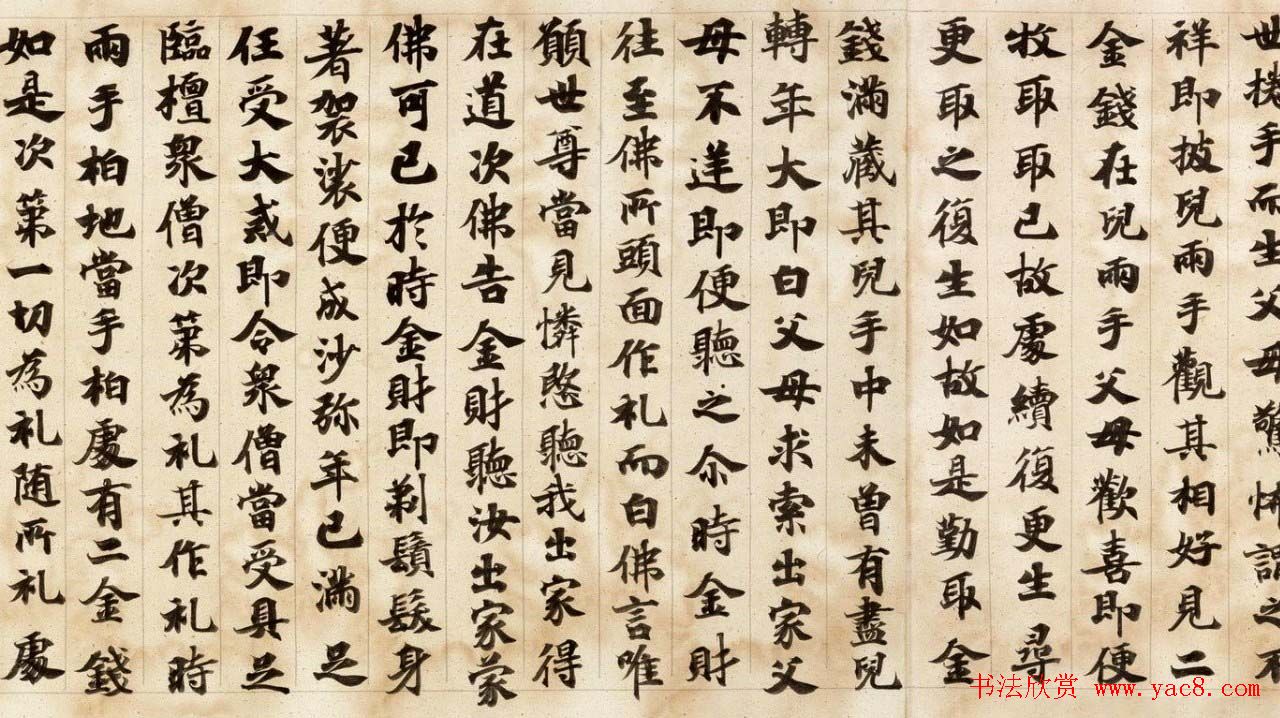 世捲手而生父母驚怪謂之不
祥即披兒兩手觀其相好見二
金錢在兒兩手父母歡喜即便
牧取取已故處續復更生尋
更取之復生如故如是勤取金
錢滿藏其兒手中未曾有盡兒
轉年大即白父母求索出家父
母不逆即便聽之尒時金財
往至佛所頭面作礼而白佛言唯
願世尊當見憐愍聽我出家得
在道次佛告金財聽汝出家蒙
佛可已於時金財即剃鬚髮身
著袈裟便成沙弥年已滿足
任受大戒即令衆僧當受具足
臨檀衆僧次第為礼其作礼時
兩手柏地當手柏處有二金錢
如是次第一切為礼随所礼處
书法欣赏 www.yac8.com